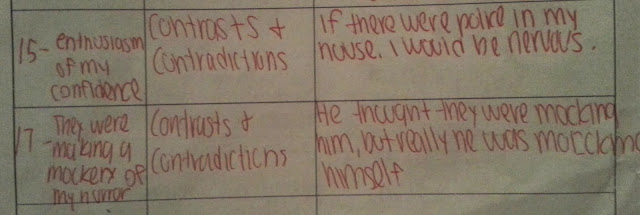 15- enthusiasm
of my
confidence
Contrasts &
Contradictions
If there were police in my
house. I would be nervous.
17 They were
-making a
mockery of
my horror
Contrasts &
Contradictions
He thought they were mocking
him, but really he was morcking
himself